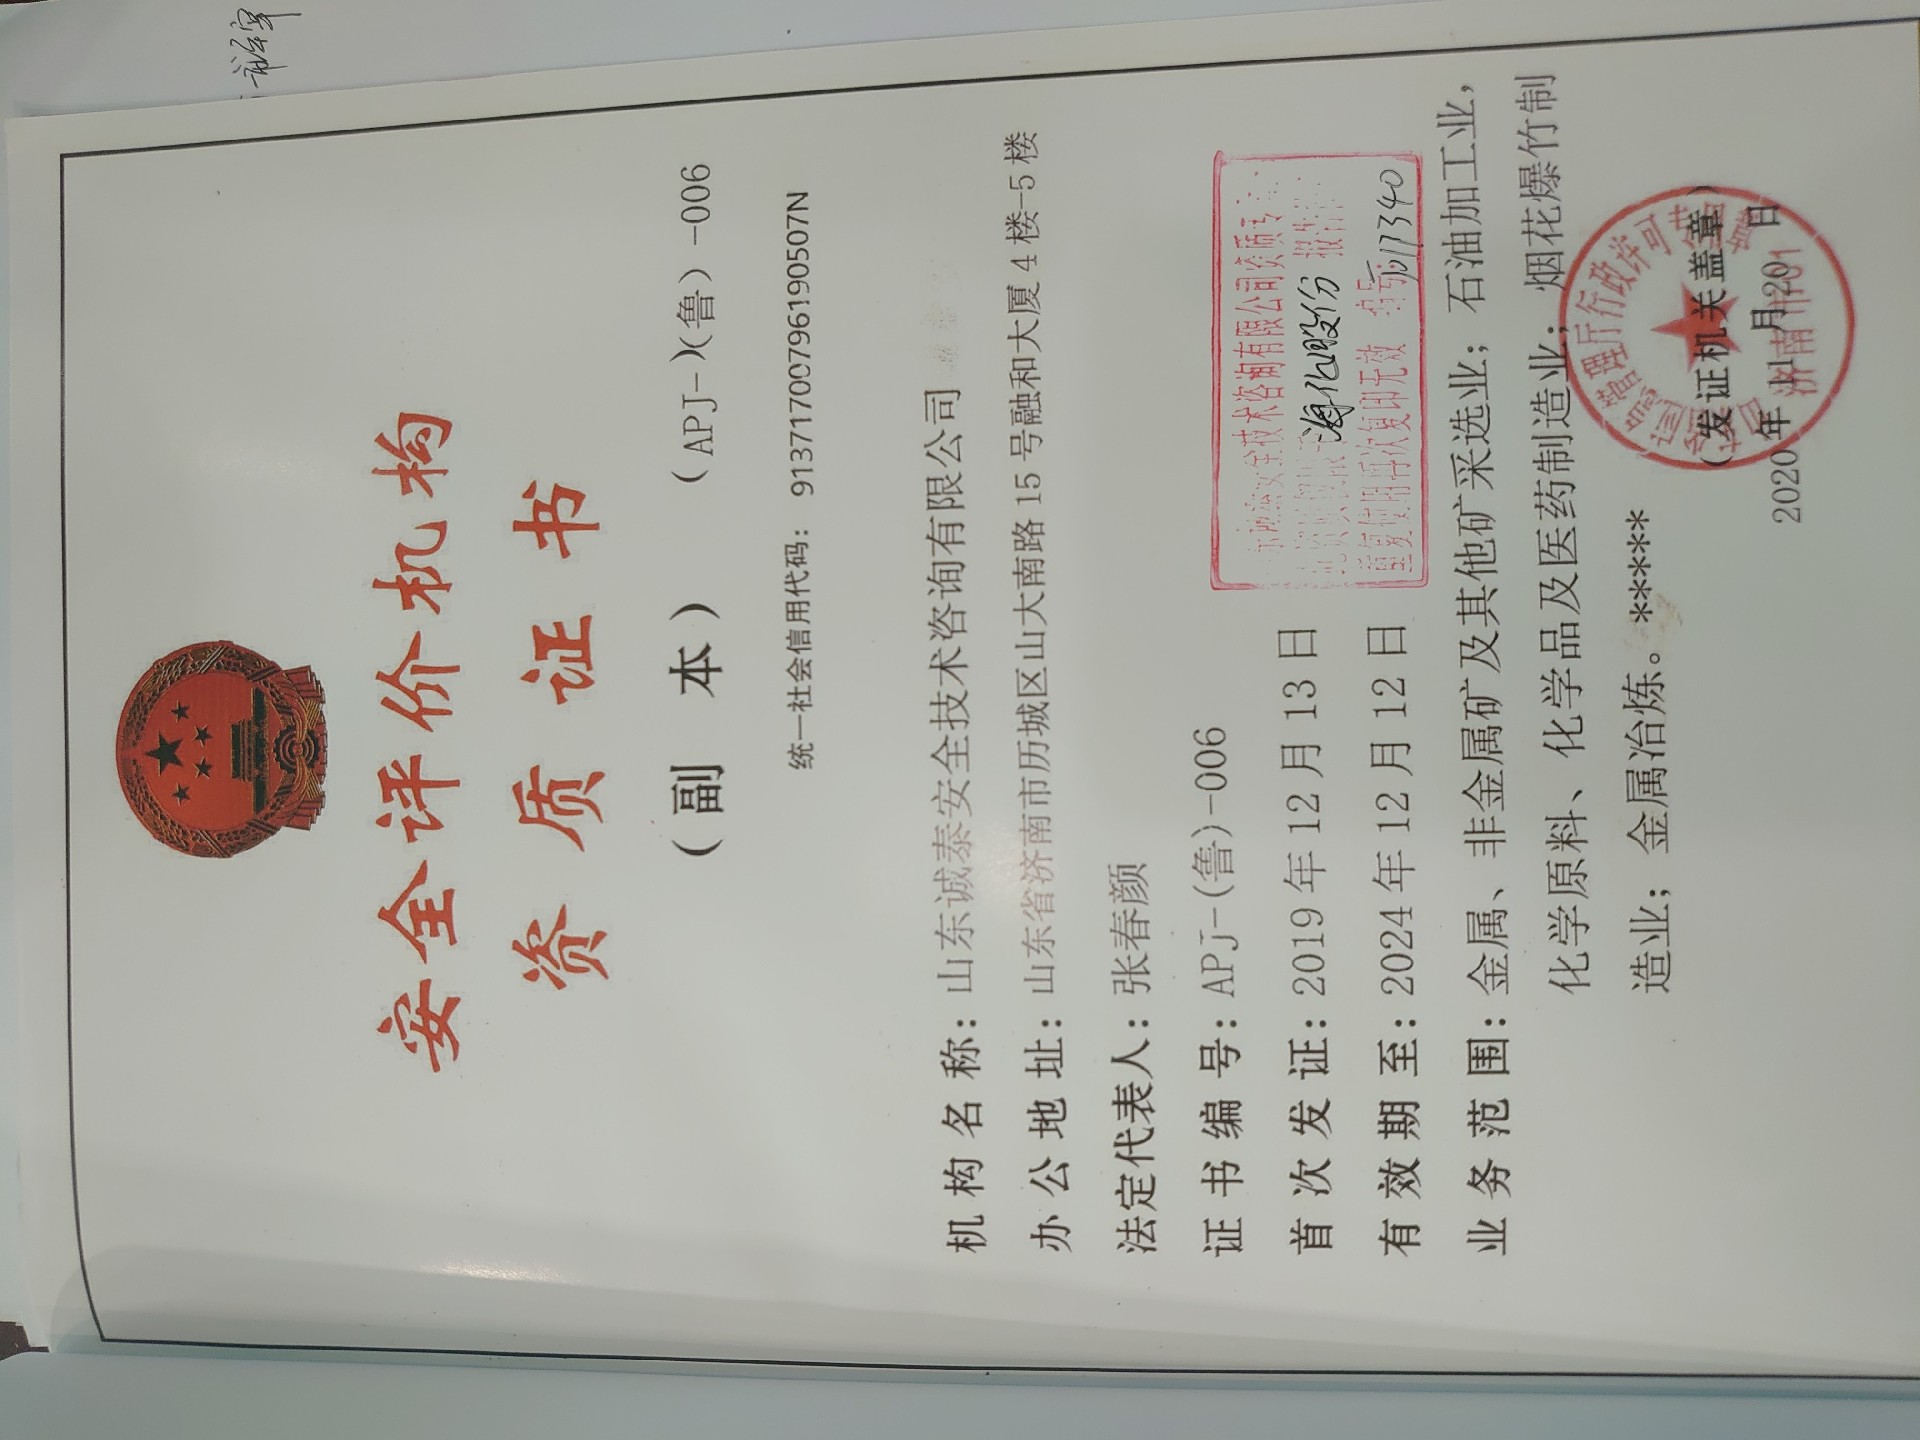 安全评价机构
资质证书
（副 本）
（APJ-）（鲁）-006
统一社会信用代码： 91371700796190507N
机构名称：山东诚泰安全技术咨询有限公司
办公地址：山东省济南市历城区山大南路15号融和大厦4楼-5楼
法定代表人：张春颜
证书编号：APJ-(鲁)-006
首次发证：2019年12月13日
有效期至：2024年12月12日
业务范围：金属、非金属矿及其他矿采选业；石油加工业，
化学原料、化学品及医药制造业；烟花爆竹制
造业；金属冶炼。*****
安全技术咨询有限公司资质专
海化股份 报告
重复使用再次复印无效 编号:
（发证机关盖章）
2020年11月20日
管理厅行政许可专用章
济南